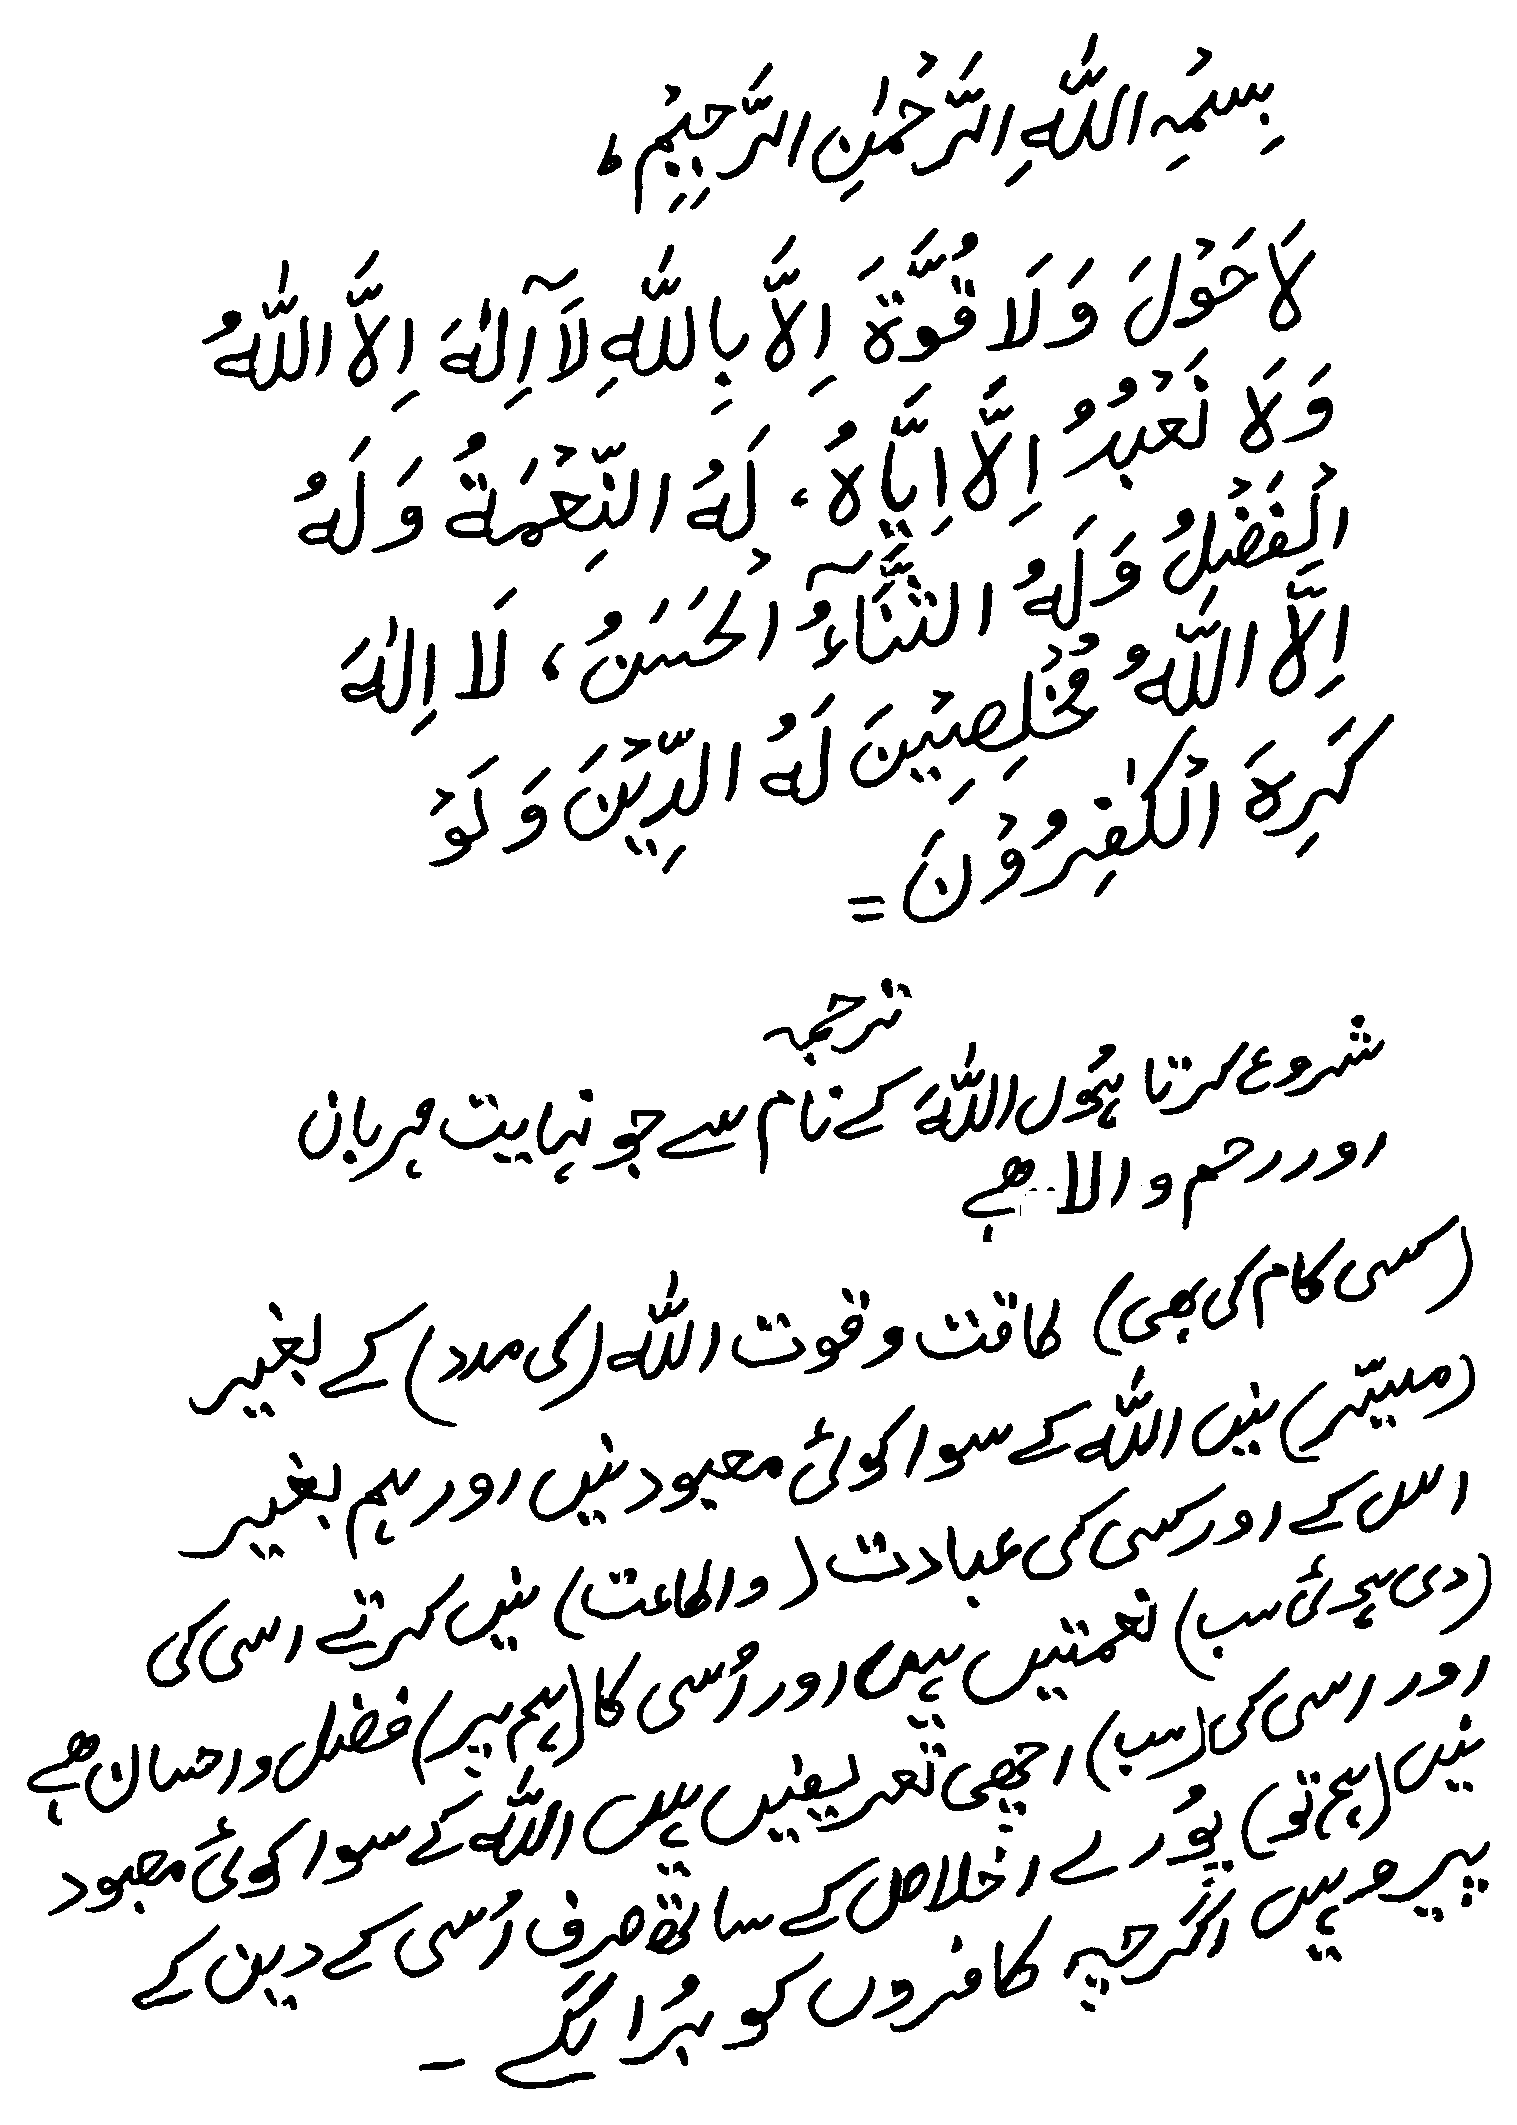 بِسْمِ اللّٰهِ الرَّحْمٰنِ الرَّحِیْمِ ط
لَا حَوْلَ وَلَا قُوَّةَ اِلَّا بِاللّٰهِ لَآ اِلٰهَ اِلَّا اللّٰهُ
وَلَا نَعْبُدُ اِلَّا اِیَّاهُ، لَهُ النِّعْمَةُ وَلَهُ
الْفَضْلُ وَلَهُ الثَّنَآءُ الْحَسَنُ، لَا اِلٰهَ
اِلَّا اللّٰهُ مُخْلِصِیْنَ لَهُ الدِّیْنَ وَلَوْ
كَرِهَ الْكٰفِرُوْنَ =
ترجمہ
شروع کرتا ہُوں اللّٰہَ کے نام سے جو نہایت مہربان
اور رحم والا ھے
(کسی کام کی بھی) طاقت و قوت اللّٰہ (کی مدد) کے بغیر
(میسّر) نہیں اللّٰہ کے سوا کوئی معبود نہیں اور ہم بغیر
اس کے اور کسی کی عبادت (و اطاعت) نہیں کرتے اسی کی
(دی ہوئی سب) نعمتیں ہیں اور اُسی کا (ہم پر) فضل و احسان ھے
اور اسی کی (سب) اچھی تعریفیں ہیں اللّٰہ کے سوا کوئی معبود
نہیں (ہم تو) پُورے اخلاص کے ساتھ صرف اُسی کے دین کے
پیرو ہیں اگرچہ کافروں کو بُرا لگے ۔